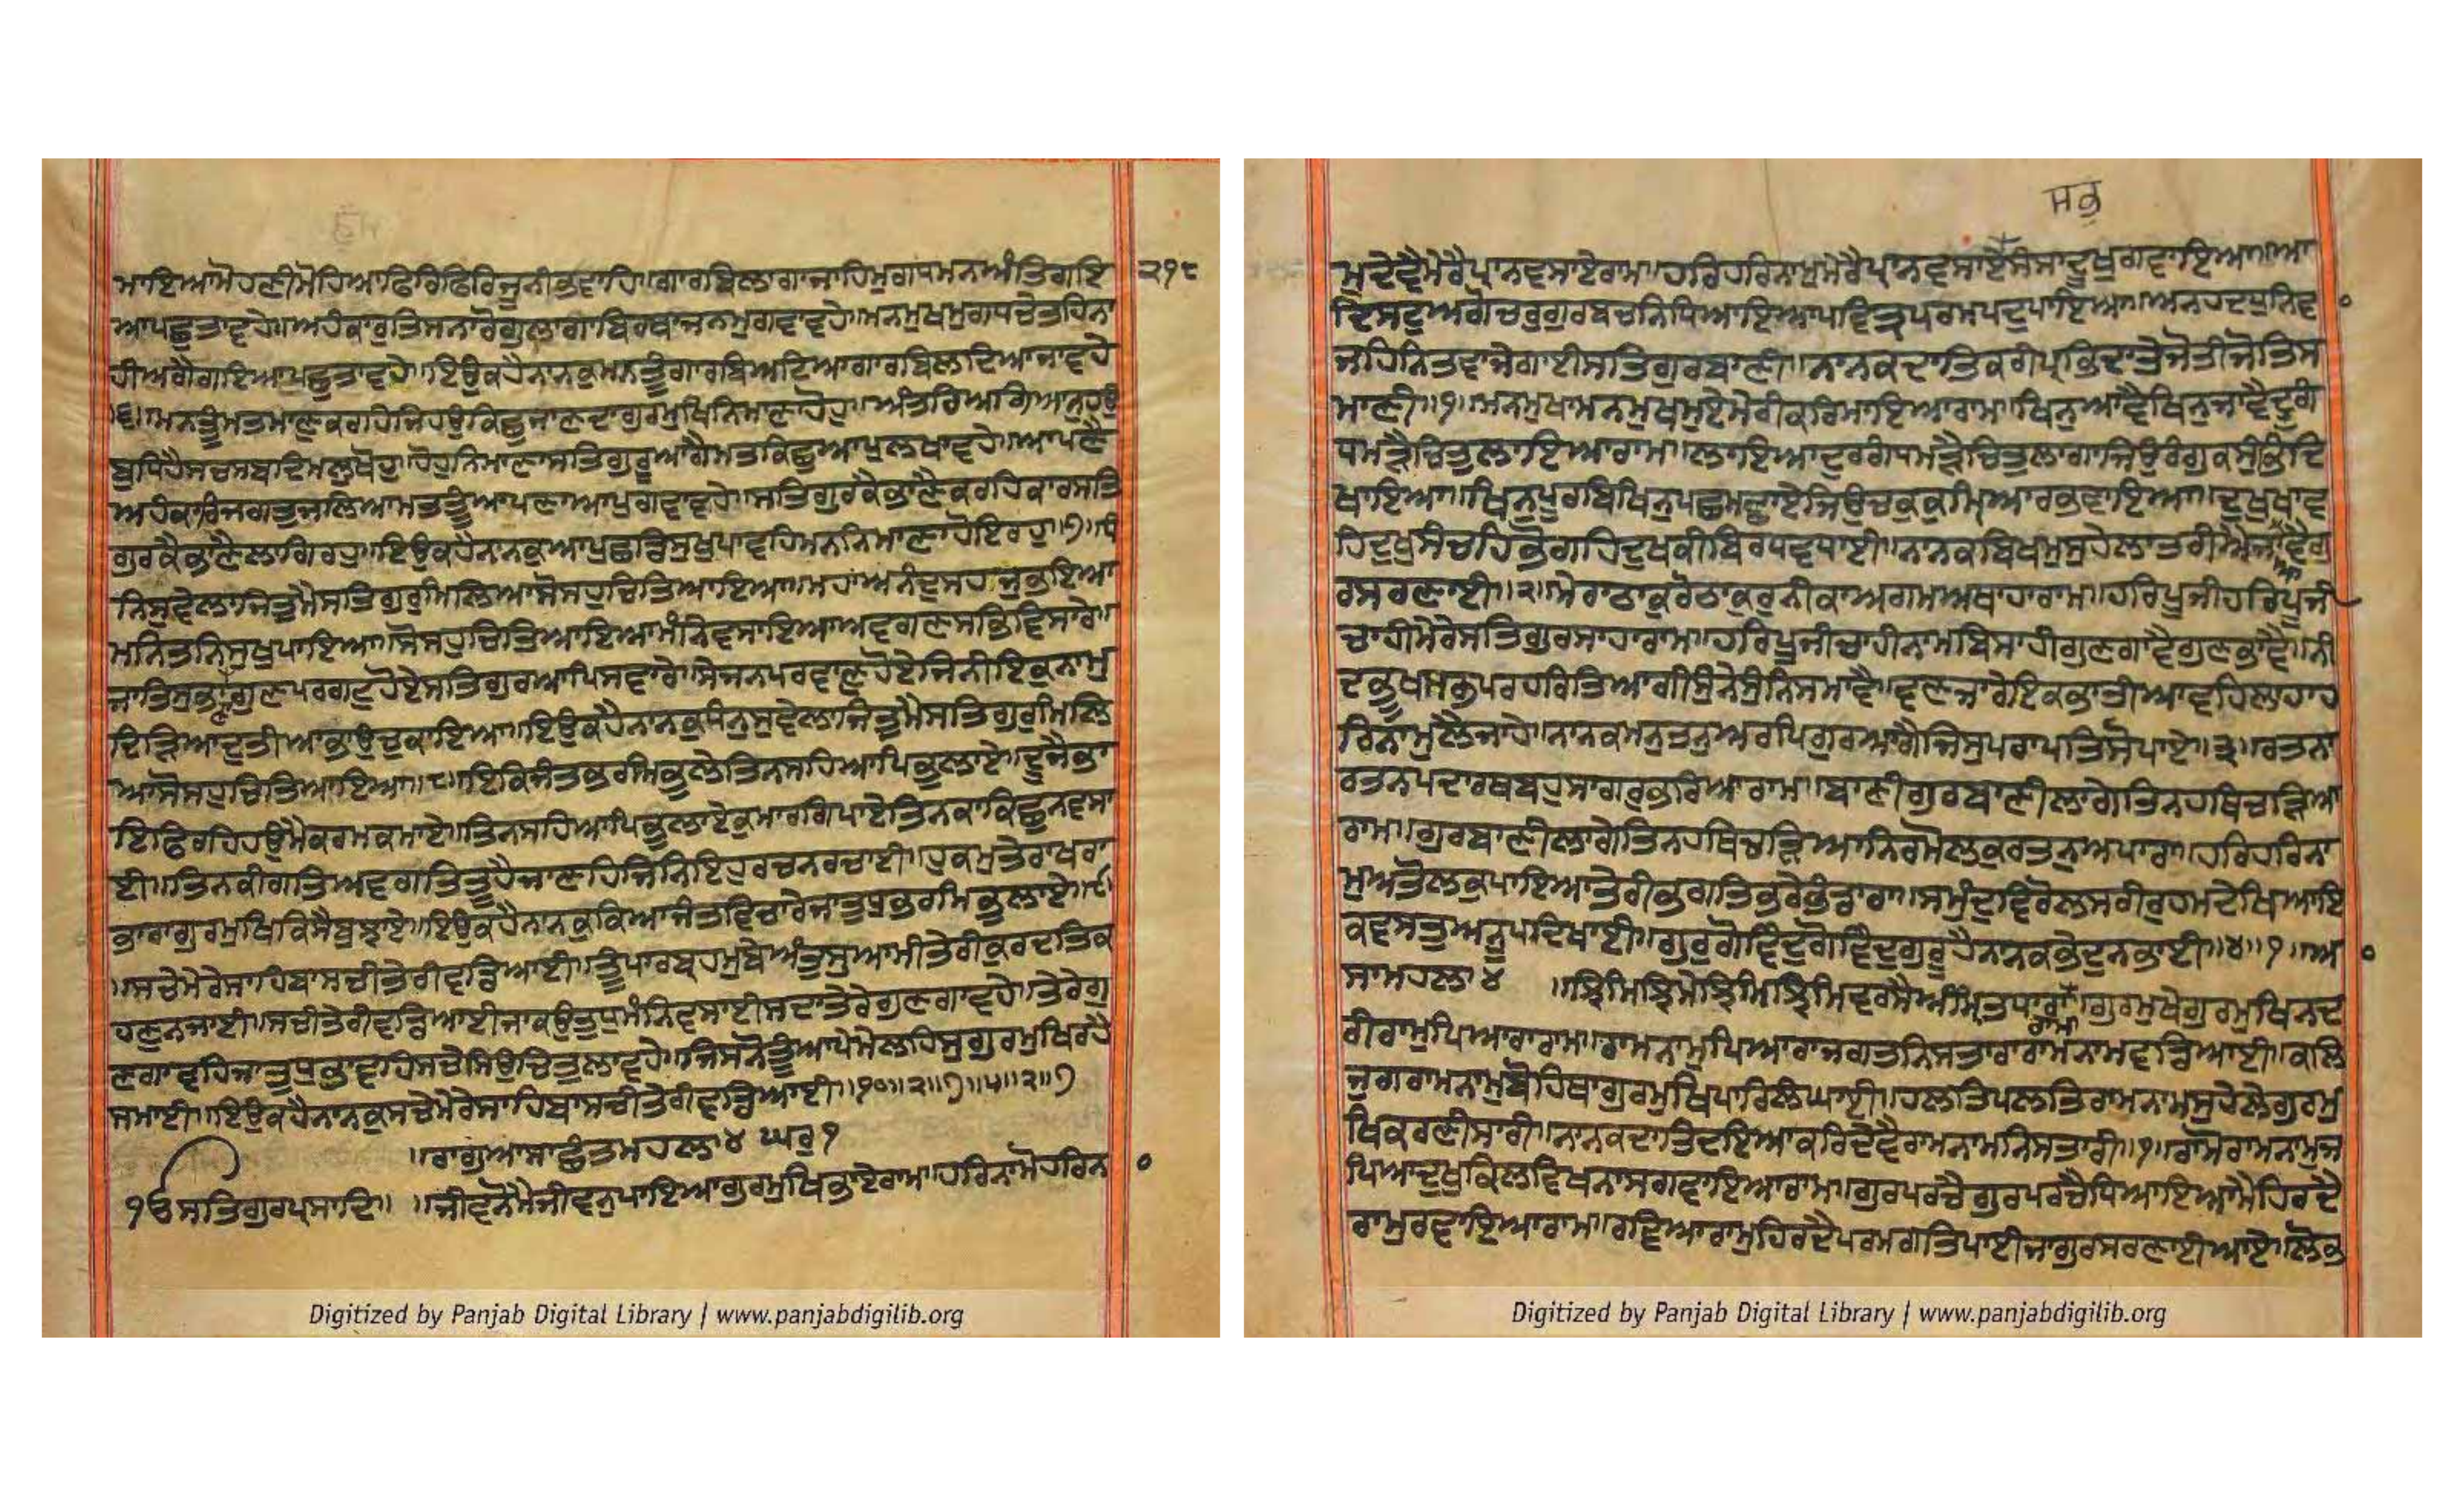 ਮਾਇਆਮੋਹਣੀਮੋਹਿਆਫਿਰਿਫਿਰਿਜੂਨੀਭਵਾਹਿ॥ਗਾਰਬਿਲਾਗਾਜਾਹਿਮੁਗਧਮਨਅੰਤਿਗਇ ੨੧੮
ਆਪਛੁਤਾਵਹੇ॥ਅਹੰਕਾਰੁਤਿਸਨਾਰੋਗੁਲਾਗਾਬਿਰਥਾਜਨਮੁਗਵਾਵਹੇ॥ਮਨਮੁਖਮੁਗਧਚੇਤਹਿਨਾ
ਹੀਅਗੈਗਇਆਪਛੁਤਾਵਹੇ॥ਇਉਕਹੈਨਾਨਕੁਮਨਤੂੰਗਾਰਬਿਅਟਿਆਗਾਰਬਿਲਦਿਆਜਾਵਹੇ
॥੬॥ਮਨਤੂੰਮਤਮਾਣੁਕਰਹਿਜਿਹਉਕਿਛੁਜਾਣਦਾਗੁਰਮੁਖਿਨਿਮਾਣਾਹੋਹੁ॥ਅੰਤਰਿਅਗਿਆਨੁਹਉ
ਬੁਧਿਹੈਸਚਸਬਦਿਮਲੁਖੋਹੁ॥ਹੋਹੁਨਿਮਾਣਾਸਤਿਗੁਰੂਅਗੈਮਤਕਿਛੁਆਪੁਲਖਾਵਹੇ॥ਆਪਣੈ
ਅਹੰਕਾਰਿਜਗਤੁਜਲਿਆਮਤਤੂੰਆਪਣਾਆਪੁਗਵਾਵਹੇ॥ਸਤਿਗੁਰਕੈਭਾਣੈਕਰਹਿਕਾਰਸਤਿ
ਗੁਰਕੈਭਾਣੈਲਾਗਿਰਹੁ॥ਇਉਕਹੈਨਾਨਕੁਆਪੁਛਡਿਸੁਖੁਪਾਵਹਿਮਨਨਿਮਾਣਾਹੋਇਰਹੁ॥੭॥ਧੰ
ਨਿਸੁਵੇਲਾਜਿਤੁਮੈਸਤਿਗੁਰੁਮਿਲਿਆਸੋਸਹੁਚਿਤਿਆਇਆ॥ਮਹਾਅਨੰਦੁਸਹਜੁਭਇਆ
ਮਨਿਤਨਿਸੁਖੁਪਾਇਆ॥ਸੋਸਹੁਚਿਤਿਆਇਆਮੰਨਿਵਸਾਇਆਅਵਗਣਸਭਿਵਿਸਾਰੇ॥
ਜਾਤਿਸੁਭਾਣਾਗੁਣਪਰਗਟੁਹੋਏਸਤਿਗੁਰਆਪਿਸਵਾਰੇ॥ਸੇਜਨਪਰਵਾਣੁਹੋਏਜਿਨੀਇਕੁਨਾਮੁ
ਦਿੜਿਆਦੁਤੀਆਭਾਉਚੁਕਾਇਆ॥ਇਉਕਹੈਨਾਨਕੁਧੰਨੁਸੁਵੇਲਾਜਿਤੁਮੈਸਤਿਗੁਰੁਮਿਲਿ
ਆਸੋਸਹੁਚਿਤਿਆਇਆ॥੮॥ਇਕਿਜੰਤਭਰਮਿਭੁਲੇਤਿਨਸਹਿਆਪਿਭੁਲਾਏ॥ਦੂਜੈਭਾ
ਇਫਿਰਹਿਹਉਮੈਕਰਮਕਮਾਏ॥ਤਿਨਸਹਿਆਪਿਭੁਲਾਏਕੁਮਾਰਗਿਪਾਏਤਿਨਕਾਕਿਛੁਨਵਸਾ
ਈ॥ਤਿਨਕੀਗਤਿਅਵਗਤਿਤੂਹੈਜਾਣਹਿਜਿਨਿਇਹਰਚਨਰਚਾਈ॥ਹੁਕਮੁਤੇਰਾਖਰਾ
ਭਾਰਾਗੁਰਮੁਖਿਕਿਸੈਬੁਝਾਏ॥ਇਉਕਹੈਨਾਨਕੁਕਿਆਜੰਤਵਿਚਾਰੇਜਾਤੁਧੁਭਰਮਿਭੁਲਾਏ॥੯
॥ਸਚੇਮੇਰੇਸਾਹਿਬਾਸਚੀਤੇਰੀਵਡਿਆਈ॥ਤੂੰਪਾਰਬ੍ਰਹਮੁਬੇਅੰਤੁਸੁਆਮੀਤੇਰੀਕੁਦਰਤਿਕ
ਹਣੁਨਜਾਈ॥ਸਚੀਤੇਰੀਵਡਿਆਈਜਾਕਉਤੁਧੁਮੰਨਿਵਸਾਈਸਦਾਤੇਰੇਗੁਣਗਾਵਹੇ॥ਤੇਰੇਗੁ
ਣਗਾਵਹਿਜਾਤੁਧੁਭਾਵਹਿਸਚੇਸਿਉਚਿਤੁਲਾਵਹੇ॥ਜਿਸਨੋਤੂੰਆਪੇਮੇਲਹਿਸੁਗੁਰਮੁਖਿਰਹੈ
ਸਮਾਈ॥ਇਉਕਹੈਨਾਨਕੁਸਚੇਮੇਰੇਸਾਹਿਬਾਸਚੀਤੇਰੀਵਡਿਆਈ॥੧੦॥੨॥੭॥੫॥੨॥੭
॥ਰਾਗੁਆਸਾਛੰਤਮਹਲਾ੪ ਘਰੁ੧
੧ਓਸਤਿਗੁਰਪ੍ਰਸਾਦਿ॥ ॥ਜੀਵਨੋਮੈਜੀਵਨੁਪਾਇਆਗੁਰਮੁਖਿਭਾਏਰਾਮ॥ਹਰਿਨਾਮੋਹਰਿਨ ੦
ਸਕੁ
ਮੁਦੇਵੈਮੇਰੈਪ੍ਰਾਨਵਸਾਏਰਾਮ॥ਹਰਿਹਰਿਨਾਮੁਮੇਰੈਪ੍ਰਾਨਵਸਾਏਸੰਸਾਦੂਖੁਗਵਾਇਆ॥ਆ
ਦਿਸਟੁਅਗੋਚਰੁਗੁਰਬਚਨਿਧਿਆਇਆਪਵਿਤ੍ਰਪਰਮਪਦੁਪਾਇਆ॥ਅਨਹਦਧੁਨਿਵ ੦
ਜਹਿਨਿਤਵਾਜੇਗਾਈਸਤਿਗੁਰਬਾਣੀ॥ਨਾਨਕਦਾਤਿਕਰੀਪ੍ਰਭਿਦਾਤੈਜੋਤੀਜੋਤਿਸ
ਮਾਣੀ॥੧॥ਮਨਮੁਖਾਮਨਮੁਖਮੁਏਮੇਰੀਕਰਿਮਾਇਆਰਾਮ॥ਖਿਨੁਆਵੈਖਿਨੁਜਾਵੈਦੁਰਗੰ
ਧਮੜੈਚਿਤੁਲਾਇਆਰਾਮ॥ਲਾਇਆਦੁਰਗੰਧਮੜੈਚਿਤੁਲਾਗਾਜਿਉਰੰਗੁਕਸੁੰਭਦਿ
ਖਾਇਆ॥ਖਿਨੁਪੂਰਬਿਖਿਨੁਪਛਮਛਾਏਜਿਉਚਕੁਕੁਮਿ੍ਆਰਭਵਾਇਆ॥ਦੁਖੁਖਾਵ
ਹਿਦੁਖੁਸੰਚਹਿਭੋਗਹਿਦੁਖਕੀਬਿਰਧਵਧਾਈ॥ਨਾਨਕਬਿਖਮੁਸੁਹੇਲਾਤਰੀਐਜਾਆਵੈਗੁ
ਰਸਰਣਾਈ॥੨॥ਮੇਰਾਠਾਕੁਰੋਠਾਕੁਰੁਨੀਕਾਅਗਮਅਥਾਹਾਰਾਮ॥ਹਰਿਪੂਜੀਹਰਿਪੂਜੀ
ਚਾਹੀਮੇਰੇਸਤਿਗੁਰਸਾਹਾਰਾਮ॥ਹਰਿਪੂਜੀਚਾਹੀਨਾਮਬਿਸਾਹੀਗੁਣਗਾਵੈਗੁਣਭਾਵੈ॥ਨੀ
ਦਭੂਖਸਭਪਰਹਰਿਤਿਆਗੀਸੁੰਨੇਸੁੰਨਿਸਮਾਵੈ॥ਵਣਜਾਰੇਇਕਭਾਤੀਆਵਹਿਲਾਹਾਹ
ਰਿਨਾਮੁਲੈਜਾਹੇ॥ਨਾਨਕਮਨੁਤਨੁਅਰਪਿਗੁਰਆਗੈਜਿਸੁਪਰਾਪਤਿਸੋਪਾਏ॥੩॥ਰਤਨਾ
ਰਤਨਪਦਾਰਥਬਹੁਸਾਗਰੁਭਰਿਆਰਾਮ॥ਬਾਣੀਗੁਰਬਾਣੀਲਾਗੇਤਿਨਹਥਿਚੜਿਆ
ਰਾਮ॥ਗੁਰਬਾਣੀਲਾਗੇਤਿਨਹਥਿਚੜਿਆਨਿਰਮੋਲਕੁਰਤਨੁਅਪਾਰਾ॥ਹਰਿਹਰਿਨਾ
ਮੁਅਤੋਲਕੁਪਾਇਆਤੇਰੀਭਗਤਿਭਰੇਭੰਡਾਰਾ॥ਸਮੁੰਦੁਵਿਰੋਲਸਰੀਰੁਹਮਦੇਖਿਆਇ
ਕਵਸਤੁਅਨੂਪਦਿਖਾਈ॥ਗੁਰੁਗੋਵਿੰਦੁਗੋਵਿੰਦੁਗੁਰੂਹੈਨਾਨਕਭੇਦੁਨਭਾਈ॥੪॥੧॥ਅ ੦
ਸਾਮਹਲਾ੪ ॥ਝਿਮਿਝਿਮੇਝਿਮਿਝਿਮਿਵਰਸੈਅੰਮ੍ਰਿਤਧਾਰਾ ਰਾਮ॥ਗੁਰਮੁਖੇਗੁਰਮੁਖਿਨਦ
ਰੀਰਾਮੁਪਿਆਰਾਰਾਮ॥ਰਾਮਨਾਮੁਪਿਆਰਾਜਗਤਨਿਸਤਾਰਾਰਾਮਨਾਮਵਡਿਆਈ॥ਕਲਿ
ਜੁਗਰਾਮਨਾਮੁਬੋਹਿਥਾਗੁਰਮੁਖਿਪਾਰਿਲੰਘਾਈ॥ਹਲਤਿਪਲਤਿਰਾਮਨਾਮਸੁਹੇਲੇਗੁਰਮੁ
ਖਿਕਰਣੀਸਾਰੀ॥ਨਾਨਕਦਾਤਿਦਇਆਕਰਿਦੇਵੈਰਾਮਨਾਮਨਿਸਤਾਰੀ॥੧॥ਰਾਮੋਰਾਮਨਾਮੁਜ
ਪਿਆਦੁਖੁਕਿਲਵਿਖਨਾਸਗਵਾਇਆਰਾਮ॥ਗੁਰਪਰਚੈਗੁਰਪਰਚੈਧਿਆਇਆਮੈਹਿਰਦੈ
ਰਾਮੁਰਵਾਇਆਰਾਮ॥ਰਵਿਆਰਾਮੁਹਿਰਦੈਪਰਮਗਤਿਪਾਈਜਾਗੁਰਸਰਣਾਈਆਏ॥ਲੋਭ
Digitized by Panjab Digital Library | www.panjabdigilib.org
Digitized by Panjab Digital Library | www.panjabdigilib.org